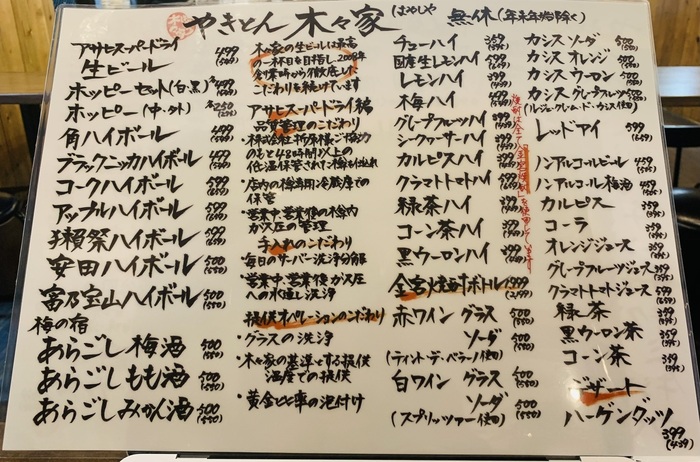 やきとん 木々家 はやしや 無休(年末年始除く)
アサヒスーパードライ
生ビール 499
ホッピーセット(白・黒) 499
ホッピー(中・外) 各250
角ハイボール 499
ブラックニッカハイボール 499
コークハイボール 599
アップルハイボール 599
獺祭ハイボール 599
安田ハイボール 500(550)
富乃宝山ハイボール 500(550)
梅の宿
あらごし梅酒 500(550)
あらごしもも酒 500(550)
あらごしみかん酒 500(550)
木々家の生ビールは最高
の一杯目を目指し、2008年
創業時から徹底した
こだわりを続けています
アサヒスーパードライ編
品質管理のこだわり
・株式会社 折原様ご協力
のもと48時間以上の
低温保管された樽を仕入れ
・店内の樽専用冷蔵庫での
保管
・営業中、営業後の樽内
ガス圧の管理
手入れのこだわり
・毎日のサーバー洗浄分解
・営業中、営業後ガス圧
への水通し洗浄
提供オペレーションのこだわり
・グラスの洗浄
・木々家の基準とする提供
温度での提供
・黄金比率の泡付け
チューハイ 359(395)
国産生レモンハイ 599
レモンハイ 399
梅ハイ 399
グレープフルーツハイ 499
シークァーサーハイ
カルピスハイ 399
クラマトトマトハイ
緑茶ハイ
コーン茶ハイ
黒ウーロンハイ
金宮焼酎ボトル 1999
赤ワイン グラス 500(550)
ソーダ 500(550)
(ティント・デ・ベラーノ使用)
白ワイン グラス 500(550)
ソーダ 500(550)
(スプリッツァー使用)
カシスソーダ 500(550)
カシスオレンジ 500(550)
カシスウーロン 500(550)
カシスグレプフルーツ 500(550)
(ルジェ・クレーム・ド・カシス使用)
レッドアイ 599(659)
ノンアルコールビール 459
ノンアルコール梅酒 459
カルピス 359(395)
コーラ 359(395)
オレンジジュース 359(395)
グレープフルーツジュース 359(395)
クラマトトマトジュース 599(659)
緑茶 359(395)
黒ウーロン茶 359(395)
コーン茶 359(395)
デザート
ハーゲンダッツ
399(439)